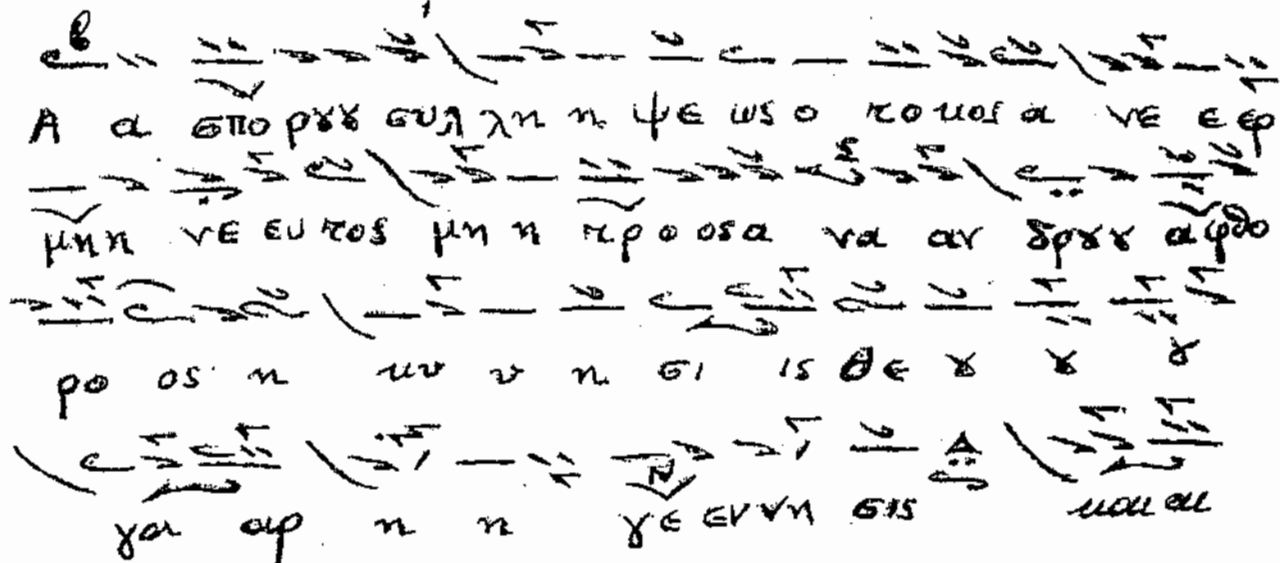 Α α σπο ρȣȣ συλ λη η ψε ως ο το κος α νε ε ερ
μηη νε ευ τος μη η τρ ο ος α να αν δρȣȣ αφθο
ρο ος η κυ υ η σι ις θε ȣ ȣ ȣ
γα αρ η η γε εν νη σις και αι